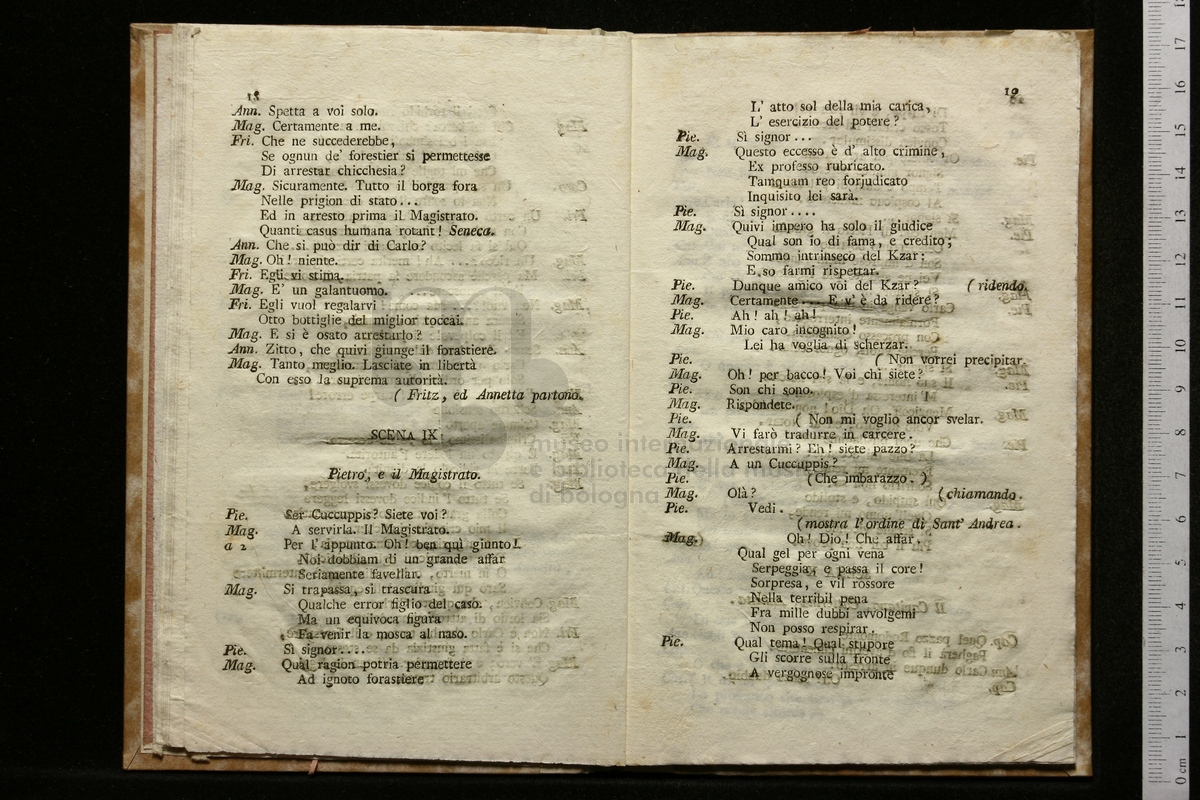 18
Ann. Spetta a voi solo.
Mag. Certamente a me.
Fri. Che ne succederebbe,
Se ognun de' forestier si permettesse
Di arrestar chicchesia?
Mag. Sicuramente. Tutto il borga fora
Nelle prigion di stato...
Ed in arresto prima il Magistrato.
Quanti casus humana rotant! Seneca.
Ann. Che si può dir di Carlo?
Mag. Oh! niente.
Fri. Egli vi stima.
Mag. E' un galantuomo.
Fri. Egli vuol regalarvi
Otto bottiglie del miglior toccai.
Mag. E si è osato arrestarlo?
Ann. Zitto, che quivi giunge il forastiere.
Mag. Tanto meglio. Lasciate in libertà
Con esso la suprema autorità.
( Fritz, ed Annetta partono.
SCENA IX.
Pietro, e il Magistrato.
Pie. Ser Cuccuppis? Siete voi?
Mag. A servirla. Il Magistrato.
a 2 Per l'appunto. Oh! ben quì giunto!
Noi dobbiam di un grande affar
Seriamente favellar.
Mag. Si trapassa, si trascura
Qualche error figlio del caso.
Ma un equivoca figura
Fa venir la mosca al naso.
Pie. Sì signor....
Mag. Qual ragion potria permettere
Ad ignoto forastiere
19
L' atto sol della mia carica,
L' esercizio del potere?
Pie. Sì signor...
Mag. Questo eccesso è d' alto crimine,
Ex professo rubricato.
Tamquam reo forjudicato
Inquisito lei sarà.
Pie. Sì signor....
Mag. Quivi impero ha solo il giudice
Qual son io di fama, e credito;
Sommo intrinseco del Kzar:
E so farmi rispettar.
Pie. Dunque amico voi del Kzar? ( ridendo.
Mag. Certamente.... E v' è da ridere?
Pie. Ah! ah! ah!
Mag. Mio caro incognito!
Lei ha voglia di scherzar.
Pie. ( Non vorrei precipitar.
Mag. Oh! per bacco! Voi chi siete?
Pie. Son chi sono.
Mag. Rispondete.
Pie. ( Non mi voglio ancor svelar.
Mag. Vi farò tradurre in carcere.
Pie. Arrestarmi? Eh! siete pazzo?
Mag. A un Cuccuppis?
Pie. ( Che imbarazzo. )
Mag. Olà? ( chiamando.
Pie. Vedi.
( mostra l'ordine di Sant' Andrea.
Mag. Oh! Dio! Che affar.
Qual gel per ogni vena
Serpeggia, e passa il core!
Sorpresa, e vil rossore
Nella terribil pena
Fra mille dubbi avvolgemi
Non posso respirar.
Pie. Qual tema! Qual stupore
Gli scorre sulla fronte
A vergognose impronte
museo internazionale
e biblioteca della musica
di bologna